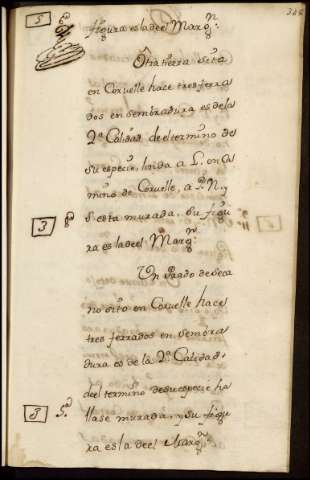 5 figura es la del Marg.n
Otra tierra Seca
en Coruelle hace tres ferra
dos en Sembradura es de la
2.a Calidad del termino de
su especie, linda a L. con Ca
mino de Coruelle, a P. N. y
3 S. esta murada, su figu
ra es la del Marg.n
Un Prado de Seca
no sito en Coruelle hace
tres ferrados en Sembra
dura es de la 2.a Calidad
del termino de su especie ha
3 llase murada, y su figu
ra es la del Marg.n